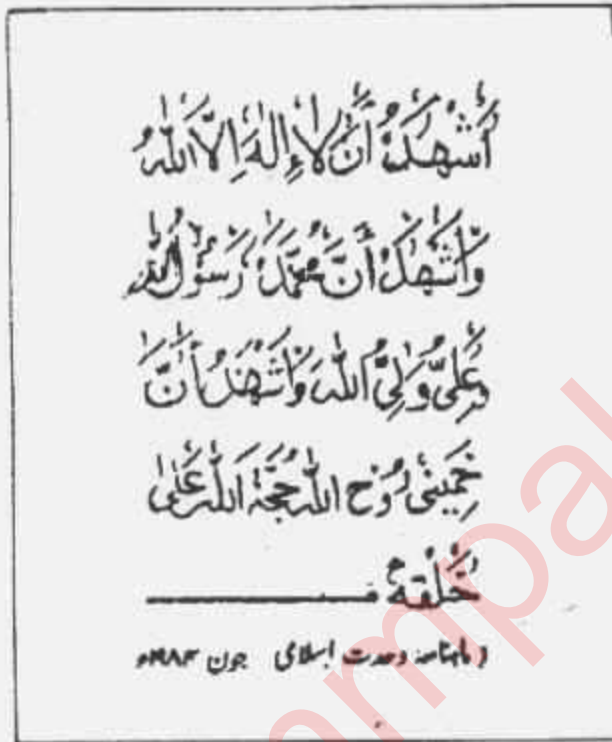 أَشْهَدُ أَنْ لَا إِلٰهَ اِلَّا اللّٰهُ
وَأَشْهَدُ أَنَّ مُحَمَّدَ رَسُوْلُ اللّٰهِ
وَعَلِيٌّ وَلِيُّ اللّٰهِ وَأَشْهَدُ أَنَّ
خُمِينِى رُوْحُ اللّٰهِ حُجَّةُ اللّٰهِ عَلٰى
خَلْقِهٖ
ماہنامہ وحدت اسلامی جون ۱۹۸۴ء